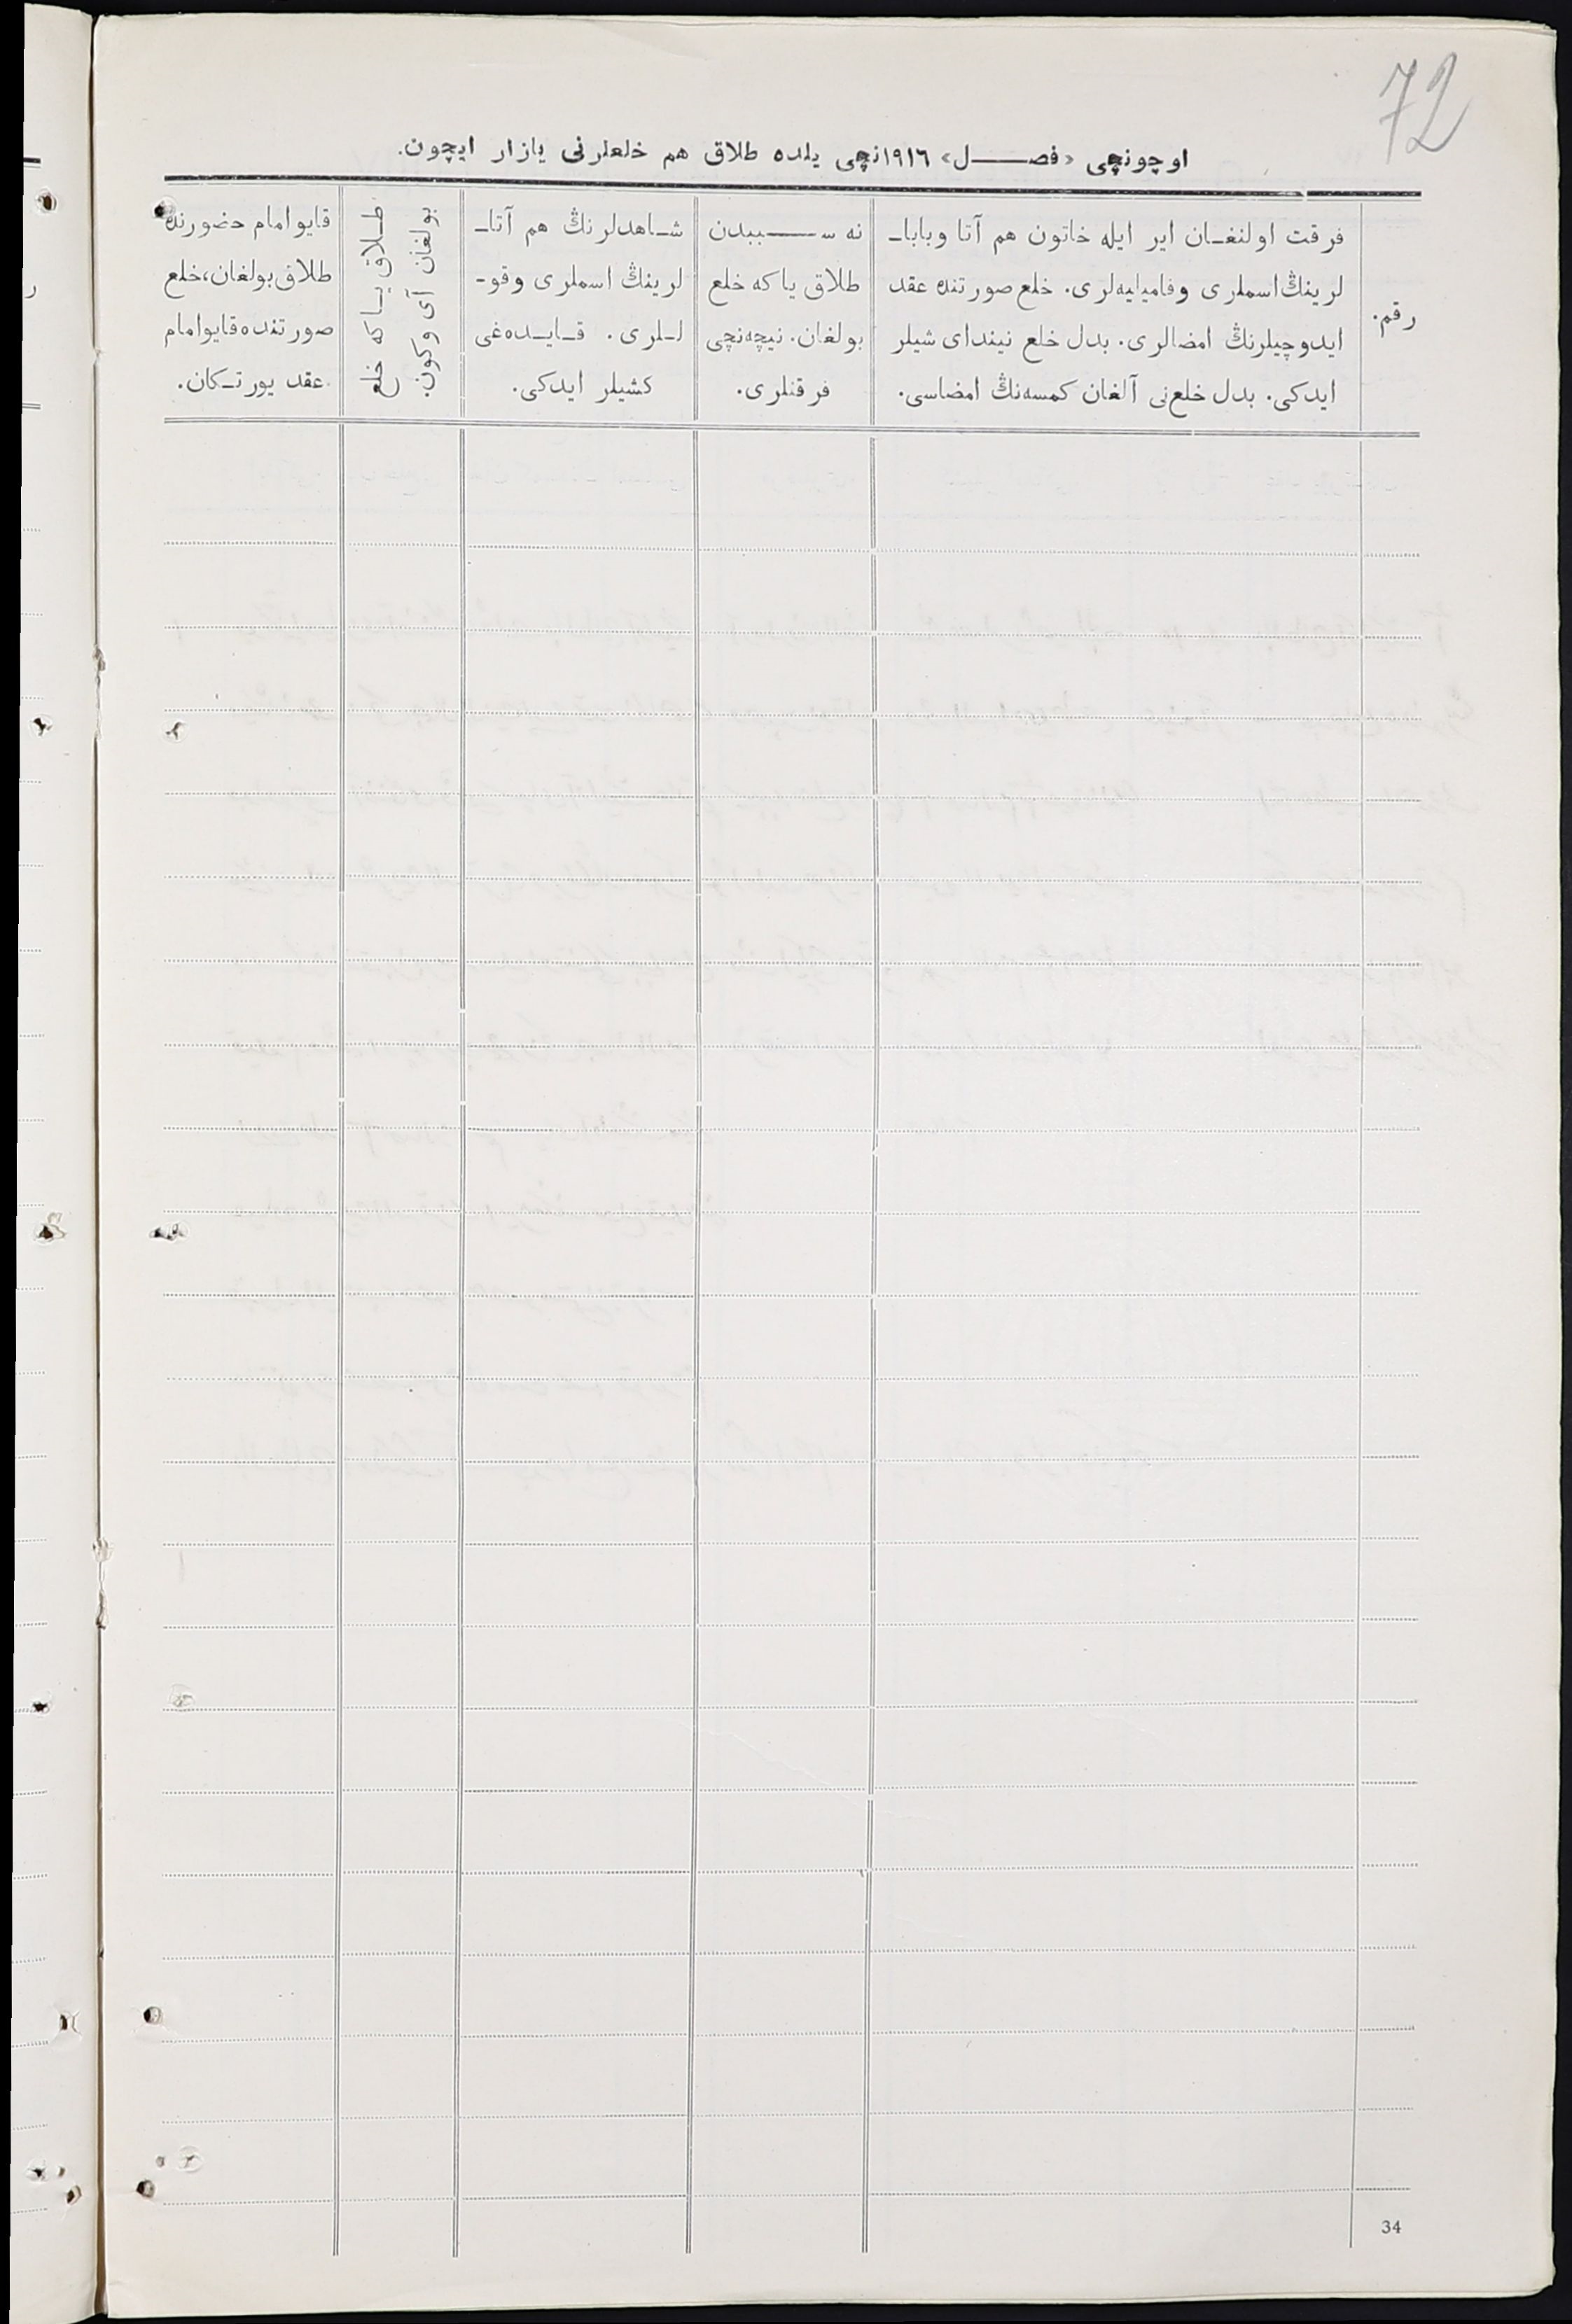 72
اوچونچی «فصل» ١٩١٦نچی یلده طلاق هم خلعلرنی یازار ایچون.
رقم.
فرقت اولنغان ایر ایله خاتون هم آتا وبابا-
لرینڭ اسملری وفامیلیه‌لری. خلع صورتنده عقد
ایدوچیلرنڭ امضالری. بدل خلع نیندای شیلر
ایدکی. بدل خلع‌نی آلغان کمسه‌نڭ امضاسی.
نه سببدن
طلاق یا که خلع
بولغان. نیچه‌نچی
فرقتلری.
شاهدلرنڭ هم آتا-
لرینڭ اسملری وقو-
للری. قایده‌غی
کشیلر ایدکی.
طلاق یا که خلع
بولغان آی وکون.
قایو امام حضورنده
طلاق بولغان، خلع
صورتنده قایو امام
عقد یورتکان.
34